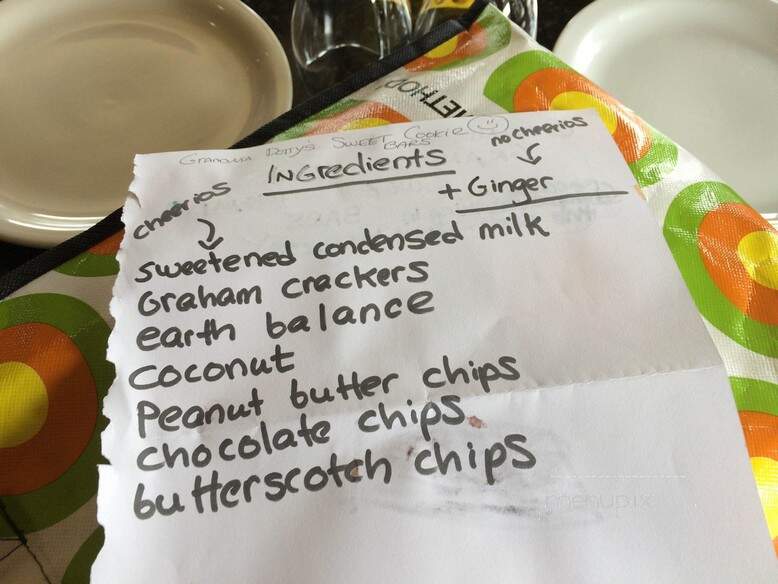 METHOD
Grandma Dotty's Sweet Cookie
BARS
no cheerios
Ingredients
+ Ginger
cheerios
sweetened condensed milk
Graham crackers
earth balance
Coconut
Peanut butter chips
chocolate chips
butterscotch chips
menupix